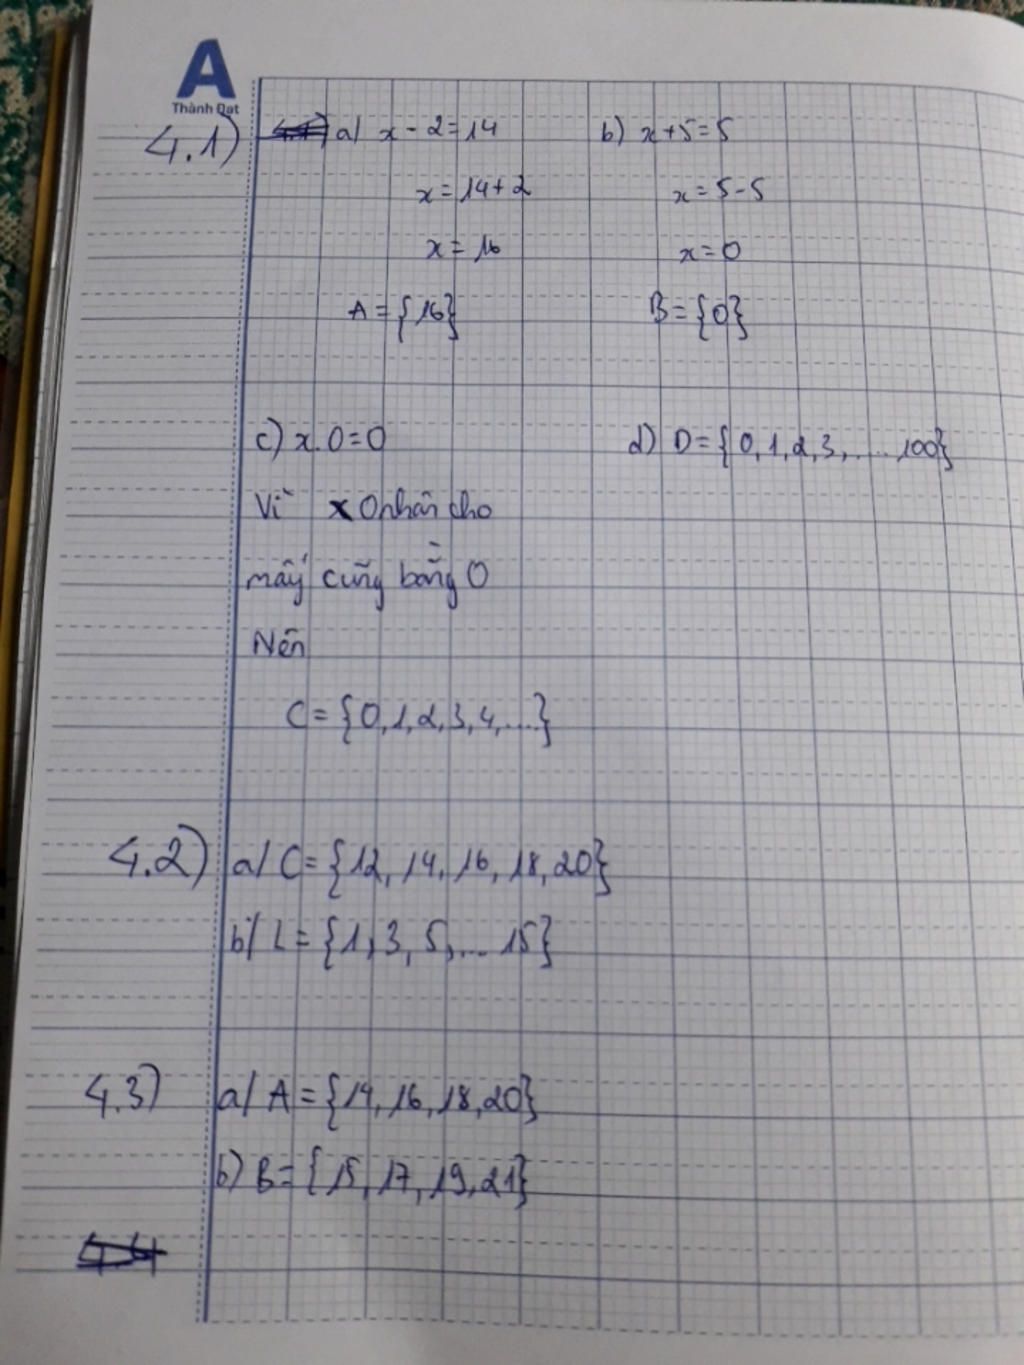 A
Thành Đạt
4.1) a/ x - 2 = 14 b) x + 5 = 5
x = 14 + 2 x = 5 - 5
x = 16 x = 0
A = {16} B = {0}
c) x. 0 = 0 d) D = {0, 1, 2, 3, ..... 100}
Vì x 0 nhân cho
mấy cũng bằng 0
Nên
C = {0, 1, 2, 3, 4, ....}
4.2) a/ C = {12, 14, 16, 18, 20}
b/ L = {1, 3, 5, ... 15}
4.3) a/ A = {14, 16, 18, 20}
b) B = {15, 17, 19, 21}